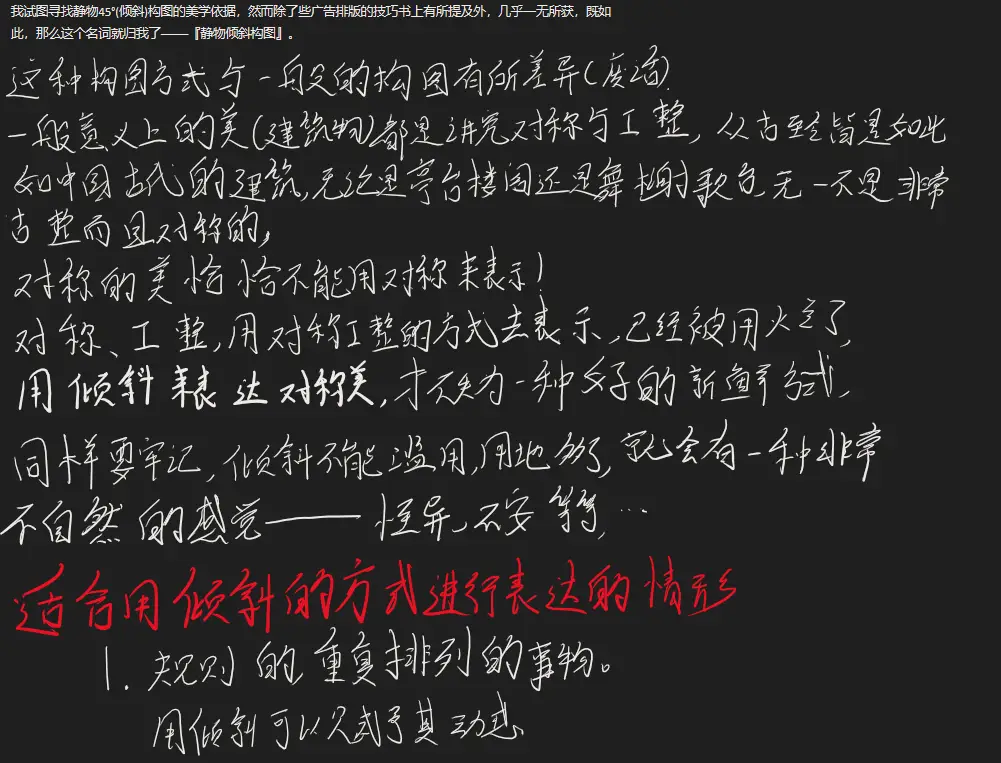 我试图寻找静物45°(倾斜)构图的美学依据，然而除了些广告排版的技巧书上有所提及外，几乎一无所获，既如
此，那么这个名词就归我了——『静物倾斜构图』。
这种构图方式与一般的构图有所差异(废话)
一般意义上的美(建筑物)都是讲究对称与工整，从古至今皆是如此
如中国古代的建筑,无论是亭台楼阁还是舞榭歌台,无一不是非常
工整而且对称的,
对称的美恰恰不能用对称来表示!
对称、工整,用对称工整的方式去表示,已经被用烂了,
用倾斜来表达对称美,才不失为一种好的新鲜方式,
同样要牢记,倾斜不能滥用,用地多了,就会有一种非常
不自然的感觉——怪异、不安等等,…
适合用倾斜的方式进行表达的情形
1. 规则的重复排列的事物。
用倾斜可以赋予其动感